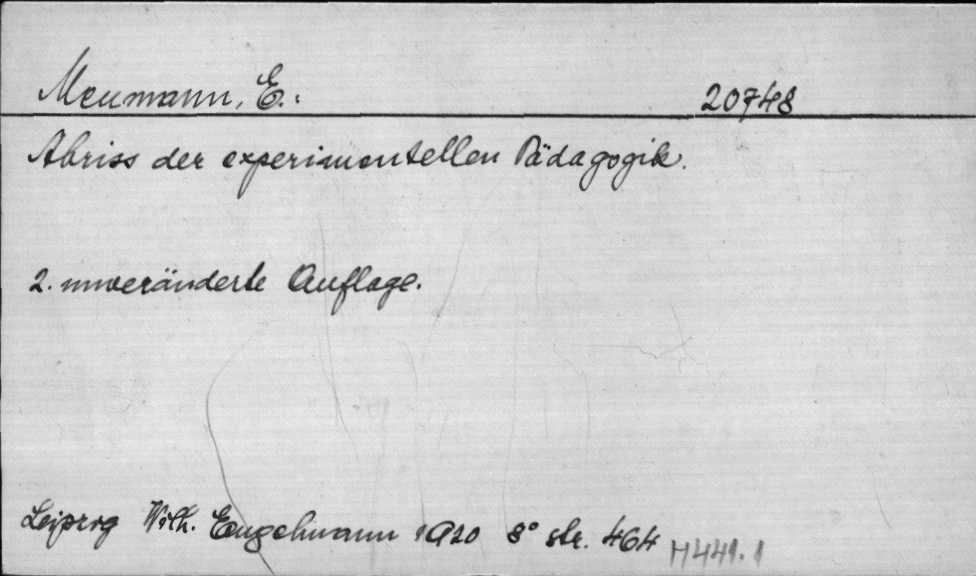 Meumann, E.: 20748
Abriss der experimentellen Pädagogik.
2. unveränderte Auflage.
Leipzig Wilh. Engelmann 1920 8° str. 464 H441.1